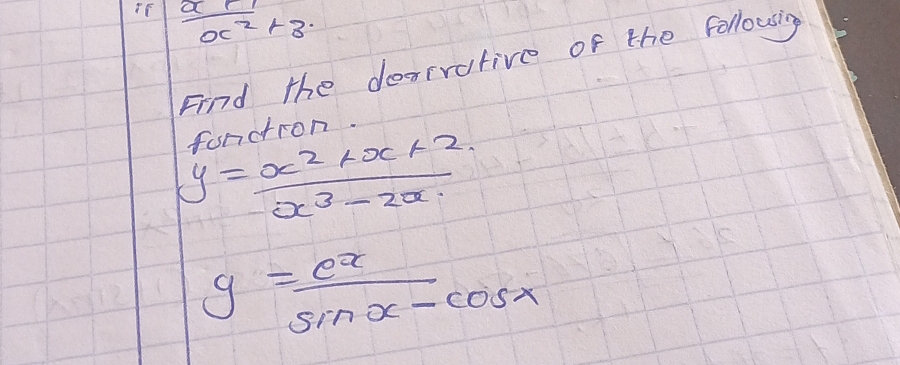 ii x + 1
x² + 3.
Find the derivative of the following
function.
y = x² + x + 2.
x³ - 2x.
y = e^x
sin x - cos x